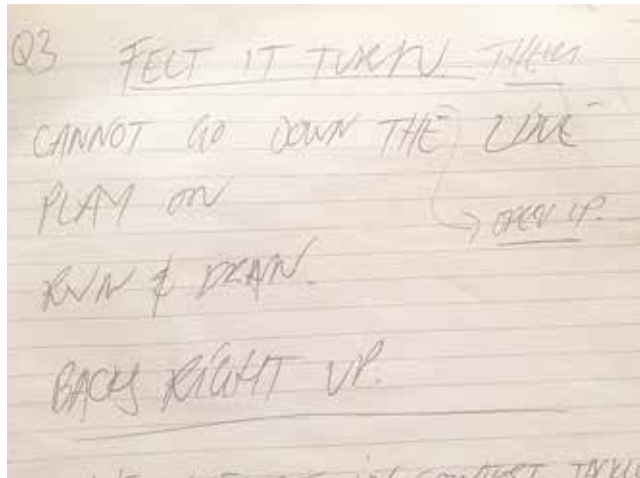 Q3 FELT IT TURN. THEN
CANNOT GO DOWN THE LINE
PLAY ON
→ OPEN UP.
RUN & DRAW.
BACK RIGHT UP.
CONTEST TACKLE